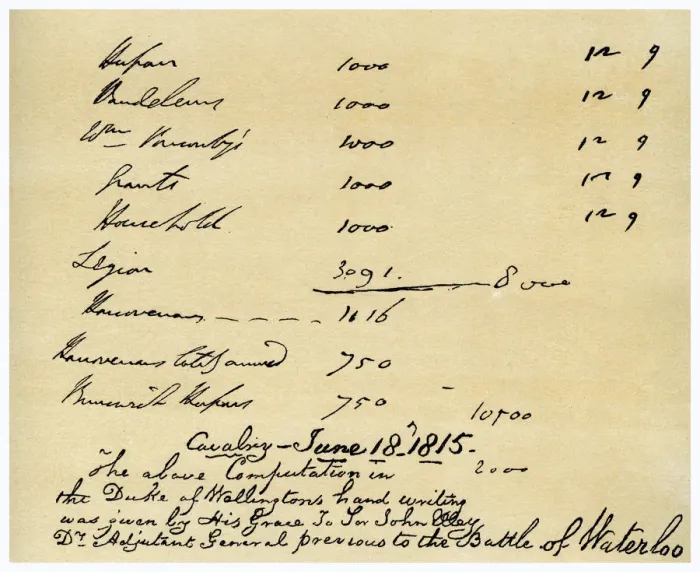 Hussars 1000 12 9
Vandeleurs 1000 12 9
Wm Ponsonby's 1000 12 9
Grants 1000 12 9
Household 1000 12 9
Legion 3091. 8000
Hanoverians - - - - 1616
Hanoverians lately arrived 750
Brunswick Hussars 750 10500
Cavalry - June 18th 1815.
The above Computation in 2000
the Duke of Wellingtons hand writing
was given by His Grace To Sir John Elley
Dy Adjutant General previous to the Battle of Waterloo